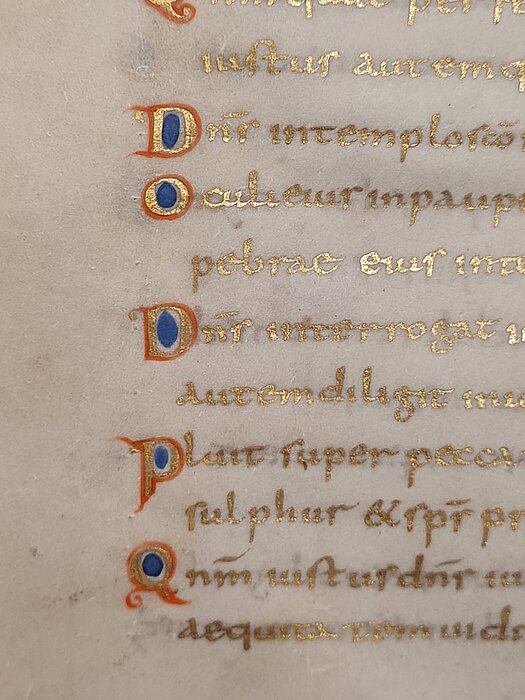 iustus autem q
Dn̄s in templo sc̄o
Oculi eius in paupe
pebrae eius inte
Dn̄s interrogat
autem diligit ini
Pluit super pecca
sulphur & sp̄r pr
Qnm̄ iustus dn̄s iu
aequitatem uidi